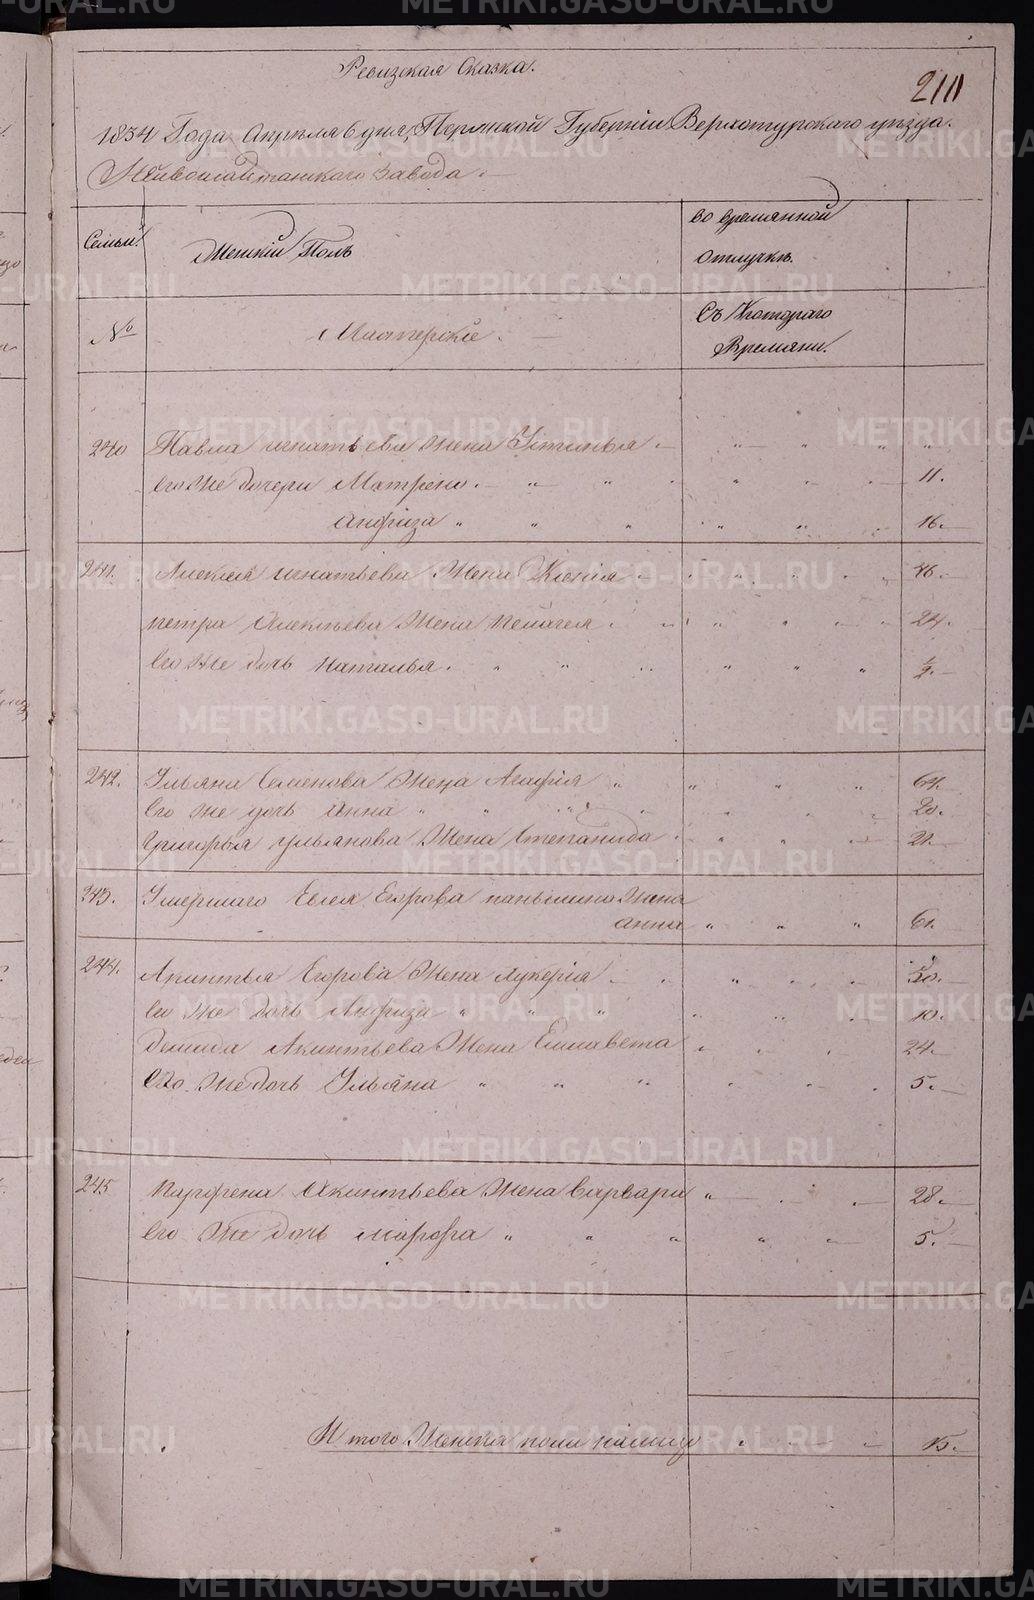 Ревизская Сказка.
211
1834 Года Апреля 6 дня, Пермской Губернии Верхотурского уезда.
Нейвошайтанского завода.
Семьи.
Женский Полъ
во времянной
отлучке.
№
Мастерские.
Съ Котораго
Времяни.
240 Павла игнатьева жена Устинья " " " "
его же дочери Матрена. " " " 11.
Анфиза " " " " " 16.
241. Алексея игнатьева Жена Ксения 46.
петра Алексеева Жена пелагея 24.
его же дочь наталья. " " " " " 1/2.
242. Ульяна Семенова Жена Агафия " " " " 64.
его же дочь Анна " " " 20.
Григорья ульянова Жена Степанида 21.
243. Умершаго Евсея Егорова паньшина Жена
анна " " " 61.
244. Акинтья Егорова Жена лукерия 50.
его же дочь Анфиза " " " 10.
демида Акинтьева Жена Елисавета 24.
его же дочь Ульяна " " " 5.
245 парфена Акинтьева Жена варвара " 28.
его же дочь марфа " " " " " 5.
Итого Женска пола налицо 15.
METRIKI.GASO-URAL.RU